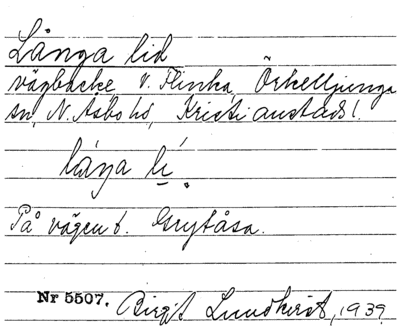 Långa lid
vägbacke v. Flinka, Örkelljunga
sn, N. Åsbo hd, Kristianstads l.
låŋa lí.
På vägen t. Grytåsa.
Nr 5507. Birgit Lundkvist, 1939